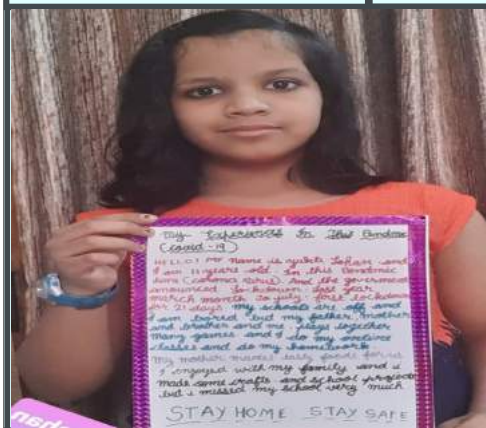 My Experience In This Pandemic
(covid-19)
HELLO! My name is Lohan and
I am 11 years old. In this Pandemic
(corona virus). And the government
announced last year
March month to july first lockdown
for 21 days. My schools are off and
I am bored but my father, mother
and brother and me, plays together
many games and I do my online
classes and do my homework
My mother makes tasty foods for us
I enjoyed with my family and i
made some crafts and school projects
but i missed my school very much
STAY HOME STAY SAFE
han